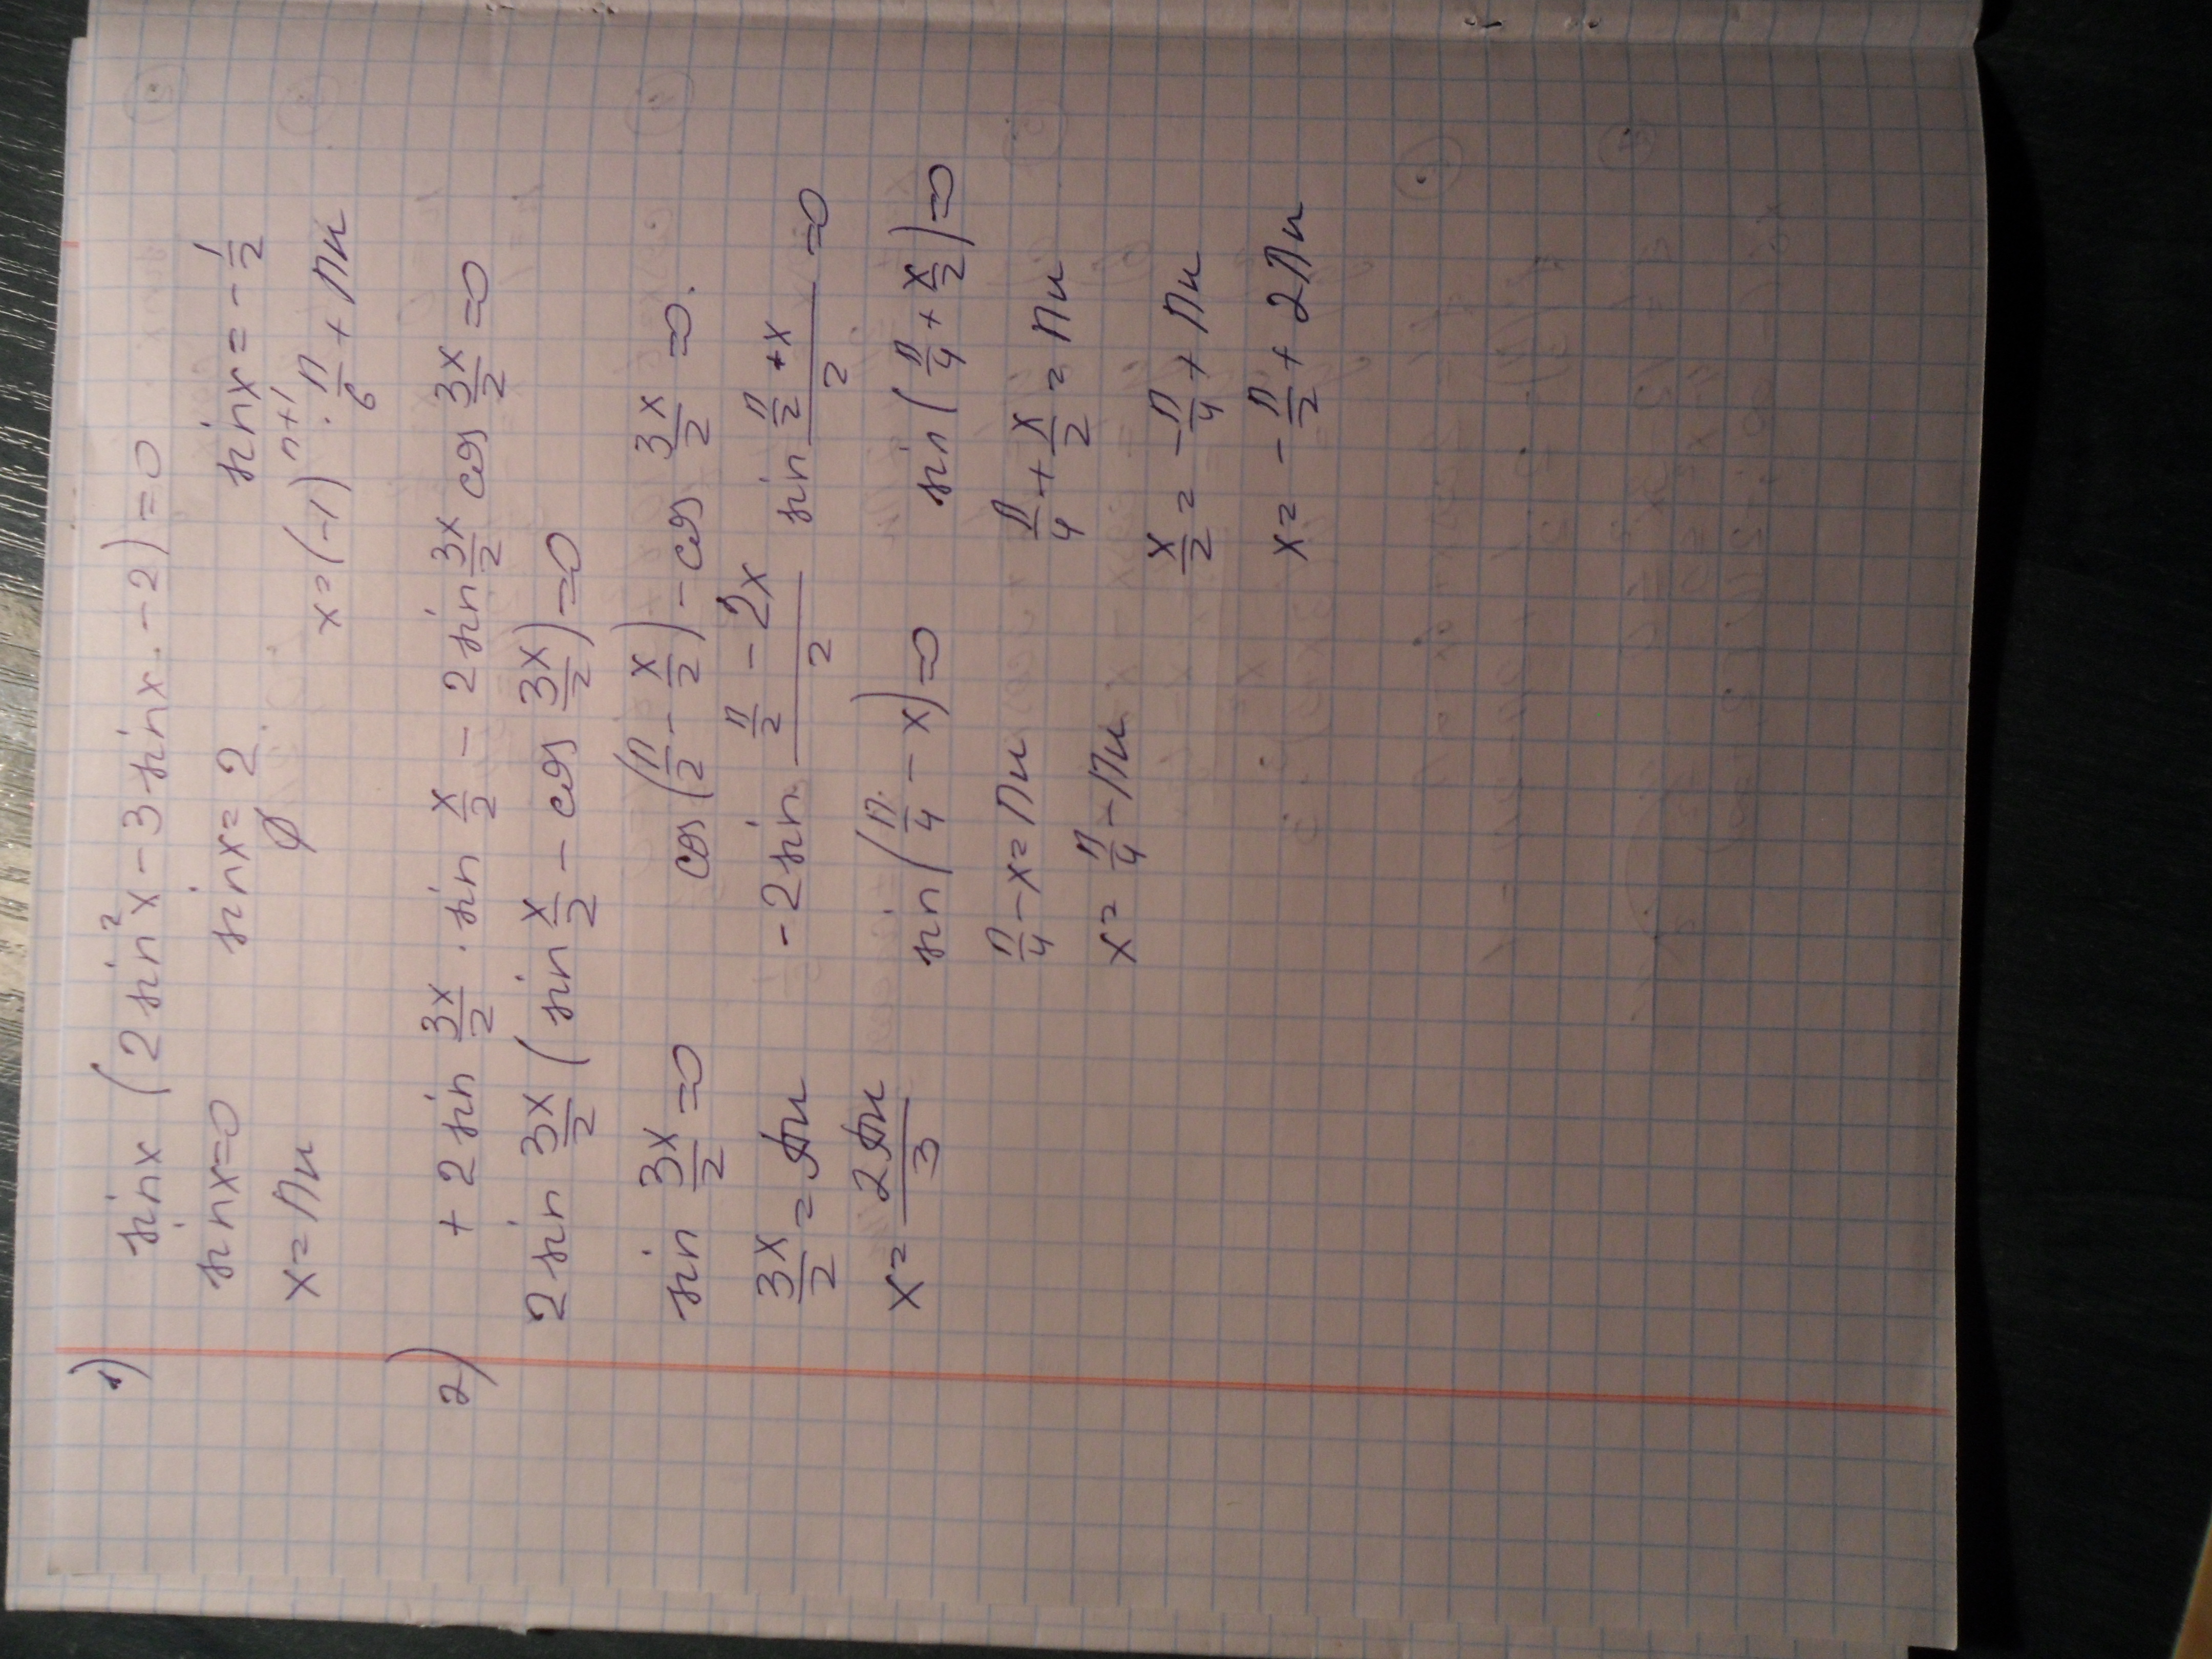 1) sin x (2 sin² x - 3 sin x - 2) = 0
sin x = 0 sin x = 2 sin x = - 1/2
x = πn ∅ x = (-1)ⁿ⁺¹ · π/6 + πn
2) + 2 sin 3x/2 · sin x/2 - 2 sin 3x/2 cos 3x/2 = 0
2 sin 3x/2 (sin x/2 - cos 3x/2) = 0
sin 3x/2 = 0 cos (π/2 - x/2) - cos 3x/2 = 0.
3x/2 = πn -2 sin (π/2 - 2x)/2 sin (π/2 + x)/2 = 0
x = 2πn/3 sin (π/4 - x) = 0 sin (π/4 + x/2) = 0
π/4 - x = πn π/4 + x/2 = πn
x = π/4 - πn x/2 = - π/4 + πn
x = - π/2 + 2πn